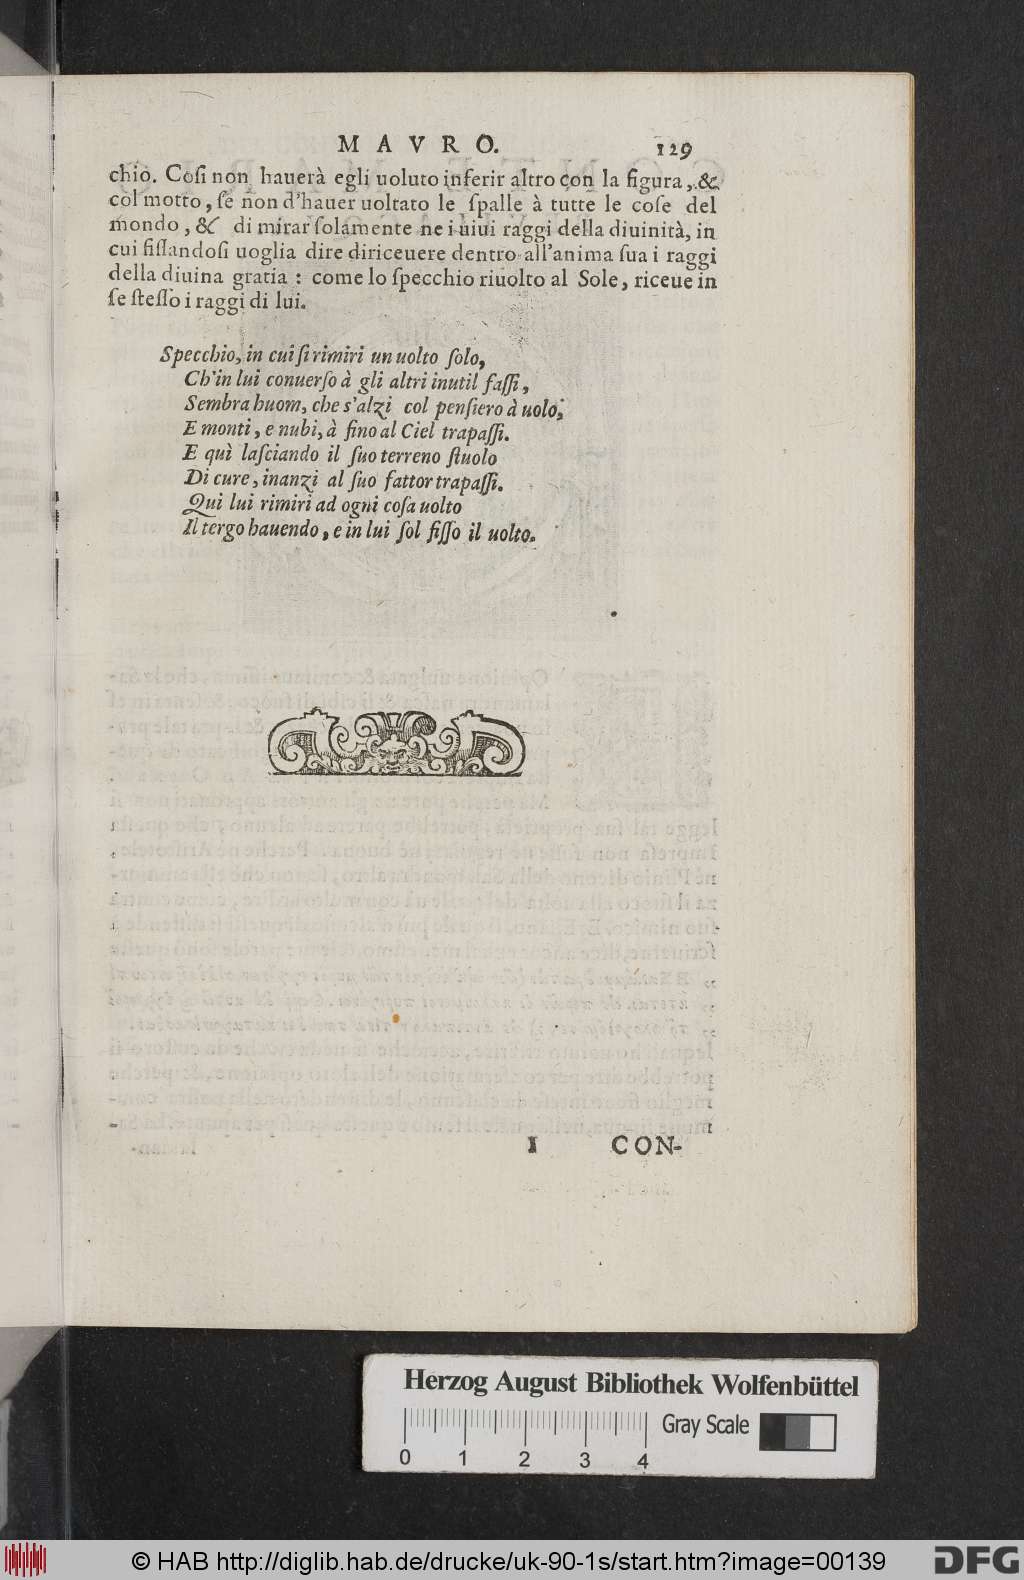 MAVRO. 129
chio. Coſi non hauerà egli uoluto inferir altro con la figura, &
col motto, ſe non d'hauer uoltato le ſpalle à tutte le coſe del
mondo, & di mirar ſolamente ne i uiui raggi della diuinità, in
cui fiſſandoſi uoglia dire diriceuere dentro all'anima ſua i raggi
della diuina gratia : come lo ſpecchio riuolto al Sole, riceue in
ſe ſteſſo i raggi di lui.
Specchio, in cui ſi rimiri un uolto ſolo,
Ch'in lui conuerſo à gli altri inutil faſſi,
Sembra huom, che s'alzi col penſiero à uolo,
E monti, e nubi, à fino al Ciel trapaſſi.
E quì laſciando il ſuo terreno ſtuolo
Di cure, inanzi al ſuo fattor trapaſſi.
Qui lui rimiri ad ogni coſa uolto
Il tergo hauendo, e in lui ſol fiſſo il uolto.
I CON-
Herzog August Bibliothek Wolfenbüttel
Gray Scale
0 1 2 3 4
© HAB http://diglib.hab.de/drucke/uk-90-1s/start.htm?image=00139
DFG